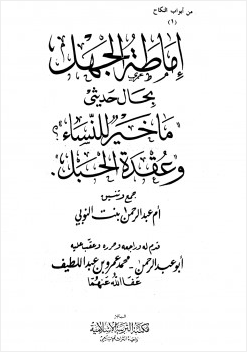 من أبواب النكاح
(١)
إماطة الجهل
بحال حديثي
"ما خير للنساء"؟
وعقدة الحبل.
جمع وتنسيق
أم عبد الرحمن بنت النوبي
قدم له وراجعه وحرره وعقب عليه
أبو عبد الرحمن - محمد عمرو بن عبد اللطيف
عفا الله عنهما
الناشر
مكتبة التربية الإسلامية